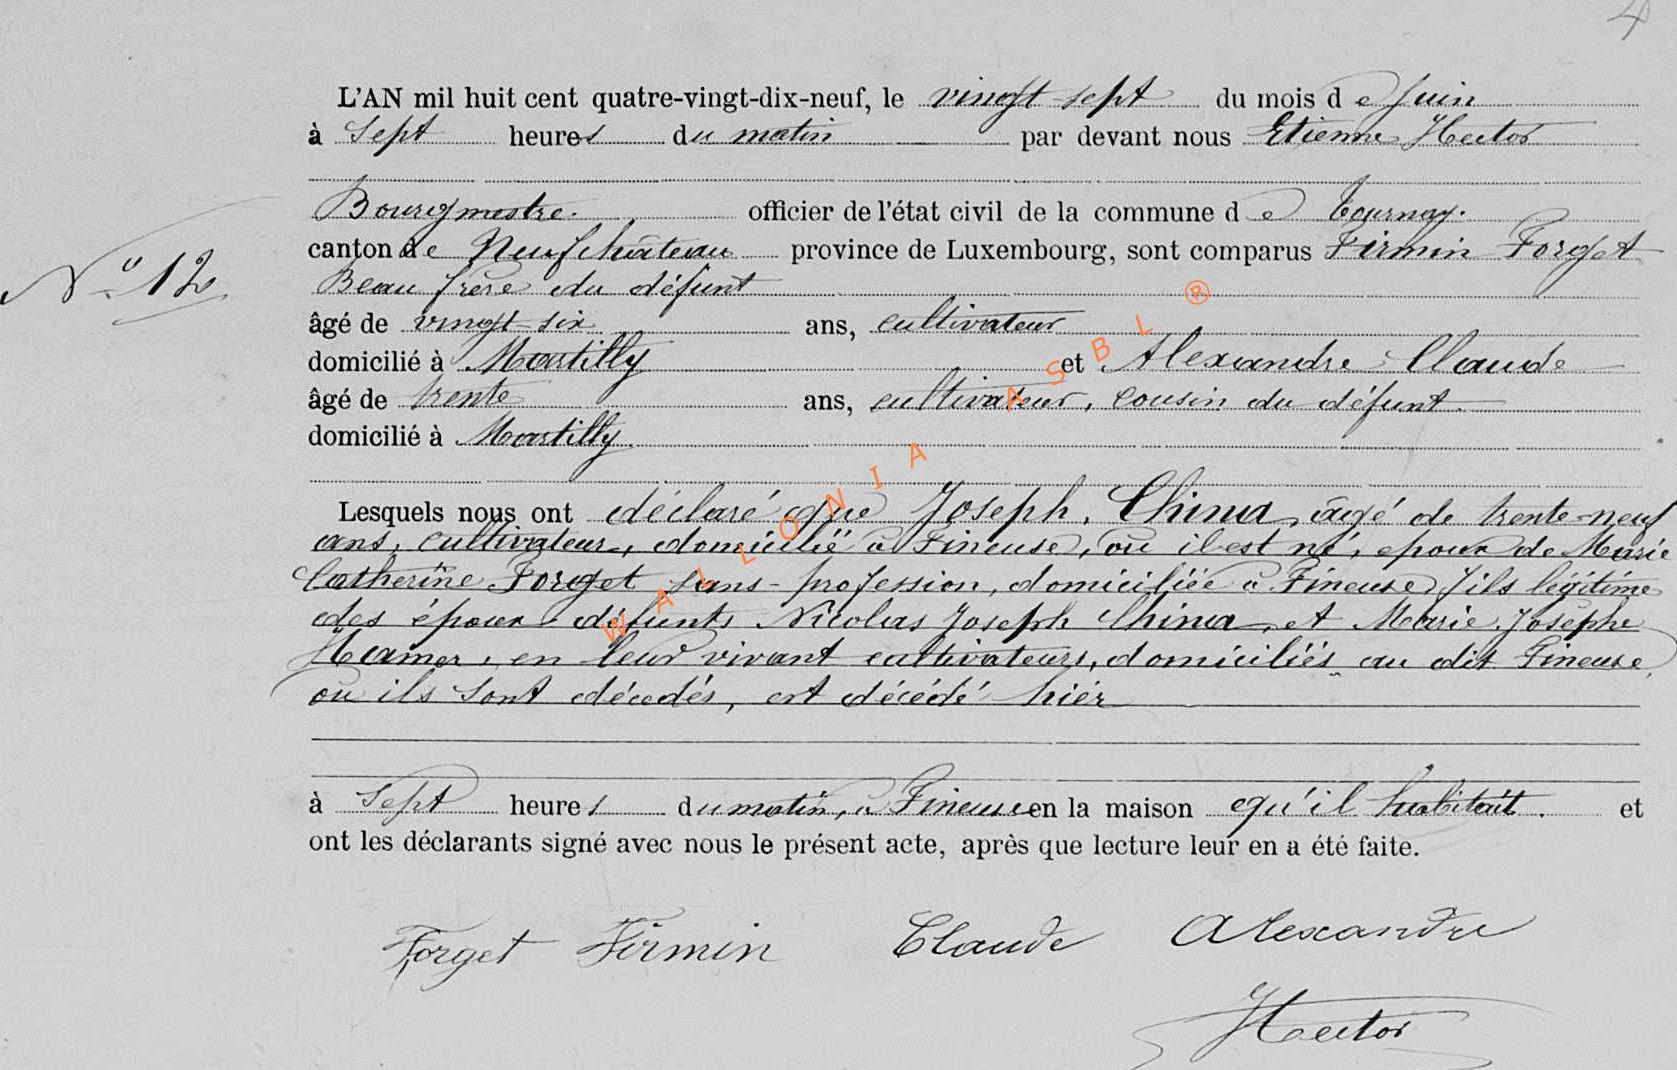 4
L'AN mil huit cent quatre-vingt-dix-neuf, le vingt-sept du mois de Juin
à Sept heures du matin par devant nous Etienne Hector
Bourgmestre. officier de l'état civil de la commune de Tournay.
N° 12 canton de Neufchâteau province de Luxembourg, sont comparus Firmin Forget
Beau frère du défunt
âgé de vingt-six ans, cultivateur
domicilié à Martilly et Alexandre Claude
âgé de trente ans, cultivateur, cousin du défunt.
domicilié à Martilly.
Lesquels nous ont déclaré que Joseph, China, âgé de trente-neuf
ans, cultivateur, domicilié à Fineuse, où il est né, epoux de Marie
Catherine Forget sans-profession, domiciliée à Fineuse, fils légitime
des époux défunts Nicolas Joseph China, et Marie Josephe
Hamer, en leur vivant cultivateurs, domiciliés au dit Fineuse,
où ils sont décédés, est décédé hier
à Sept heures du matin, à Fineuse en la maison qu'il habitait. et
ont les déclarants signé avec nous le présent acte, après que lecture leur en a été faite.
Forget Firmin Claude Alexandre
Hector
WALLONIA ASBL ®